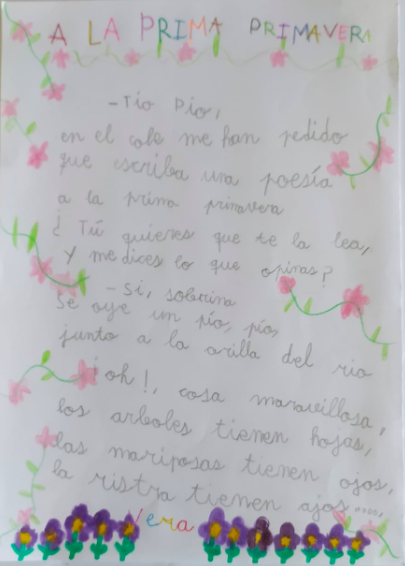 A LA PRIMA PRIMAVERA
- Tío Pío,
en el cole me han pedido
que escriba una poesía
a la prima primavera
¿Tú quieres que te la lea,
y me dices lo que opinas?
- Si, soberina
Se oye un pío, pío,
junto a la orilla del rio
¡oh!, cosa maravillosa,
los arboles tienen hojas,
las mariposas tienen ojos,
la ristra tienen ajos....
Vera